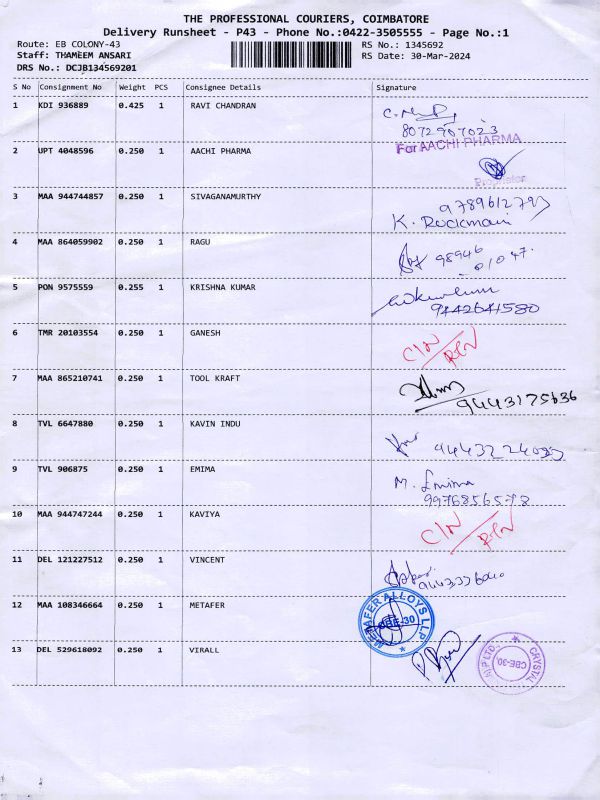 THE PROFESSIONAL COURIERS, COIMBATORE
Delivery Runsheet - P43 - Phone No.:0422-3505555 - Page No.:1
Route: EB COLONY-43 RS No.: 1345692
Staff: THAMEEM ANSARI RS Date: 30-Mar-2024
DRS No.: DCJB134569201
S No Consignment No Weight PCS Consignee Details Signature
1 KDI 936889 0.425 1 RAVI CHANDRAN
8072907023
2 UPT 4048596 0.250 1 AACHI PHARMA For AACHI PHARMA
Proprietor
3 MAA 944744857 0.250 1 SIVAGANAMURTHY
K. Ruckmani
4 MAA 864059902 0.250 1 RAGU 98946
01047
5 PON 9575559 0.255 1 KRISHNA KUMAR
9442641580
6 TMR 20103554 0.250 1 GANESH
7 MAA 865210741 0.250 1 TOOL KRAFT
9443175636
8 TVL 6647880 0.250 1 KAVIN INDU
9 TVL 906875 0.250 1 EMIMA M. Emima
9976856578
10 MAA 944747244 0.250 1 KAVIYA
11 DEL 121227512 0.250 1 VINCENT
12 MAA 108346664 0.250 1 METAFER METAFER ALLOYS LLP CBE-30
13 DEL 529618092 0.250 1 VIRALL CRYSTAL CBE-30